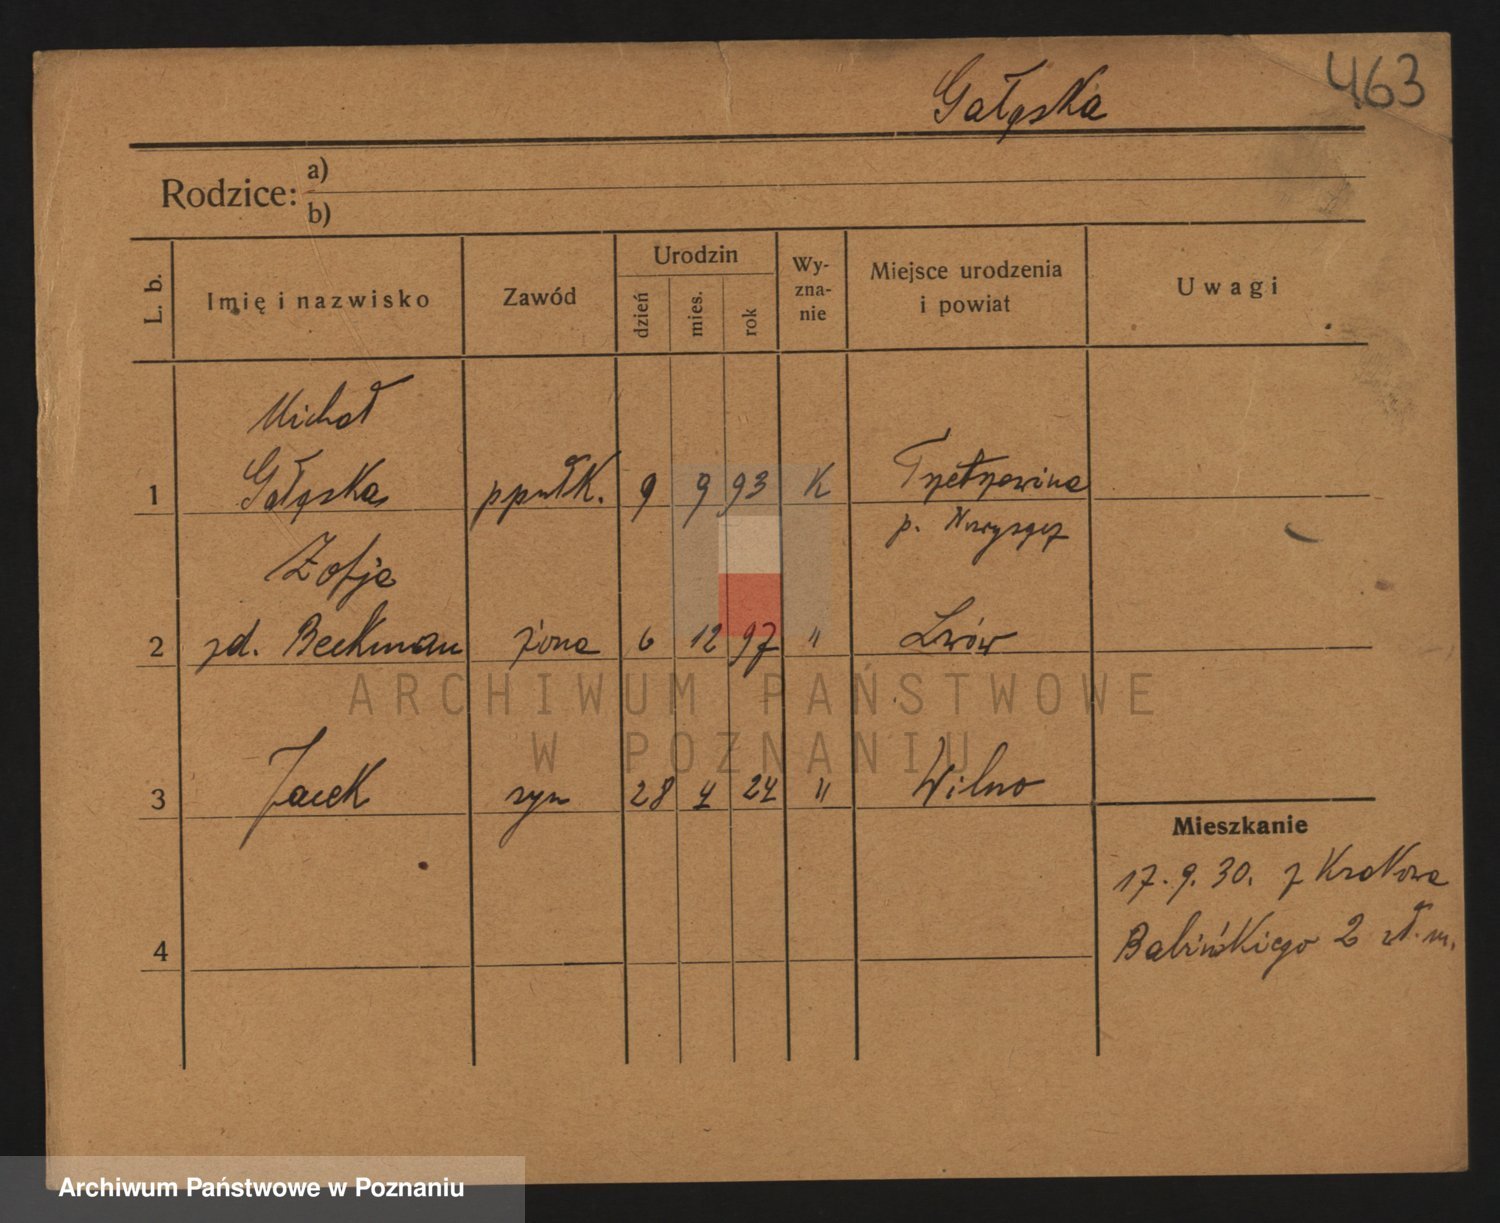 Gałąska
463
Rodzice: a)
b)
L. b.
Imię i nazwisko
Zawód
Urodzin
dzień
mies.
rok
Wy-
zna-
nie
Miejsce urodzenia
i powiat
Uwagi
Michał
1 Gałąska ppułk. 9 9 93 K
p.
Zofja
2 zd. Beekman żona 6 12 97 " Lwów
ARCHIWUM PAŃSTWOWE
W POZNANIU
3 Jacek syn 28 4 24 " Wilno
Mieszkanie
17. 9. 30. z Krakowa
Babińskiego 2 wł. m.
4
Archiwum Państwowe w Poznaniu